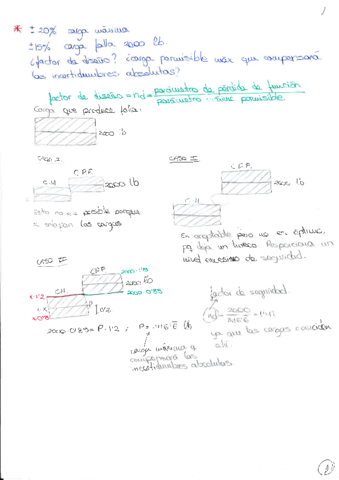 ± 20% carga máxima
± 15% carga falla 2000 lb
¿factor de diseño? ¿carga permisible máx que compensará
las incertidumbres absolutas?
factor de diseño = nd = parámetro de pérdida de función
parámetro máx permisible
Carga que produce falla:
2000 lb
CASO I
C.P.F.
2000 lb
C.M
Esto no es posible porque
se solapan las cargas
CASO II
C.P.F.
2000 lb
C.M
Es aceptable pero no es óptimo,
pq deja un hueco. Proporciona un
nivel excesivo de seguridad.
CASO III
C.P.F
2000·1'15
2000 lb
2000·0'85
C.M.
1'2
P
0'8
2000·0'85 = P·1'2
lb
carga máxima q
compensará las
incertidumbres absolutas
factor de seguridad
nd = 2000
= 1'41
ya que las cargas coinciden
ahí.
1